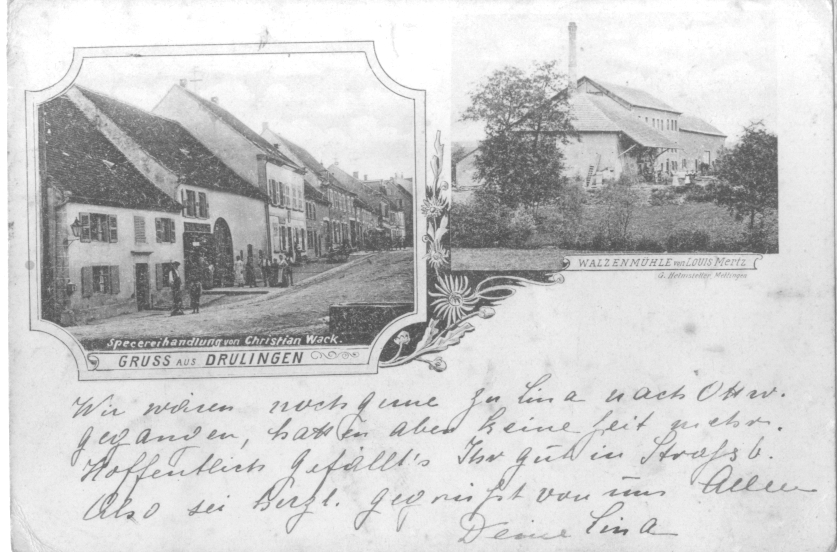 Specereihandlung von Christian Wack.
GRUSS AUS DRULINGEN
WALZENMÜHLE von LOUIS Mertz
G. Hofmstetter, Mettingen
Wir wären noch gerne zu Lina nach Ottw.
gegangen, hatten aber keine Zeit mehr.
Hoffentlich gefällt's Ihr gut in Strassb.
Also sei herzl. gegrüsst von uns Allen
Deine Lina